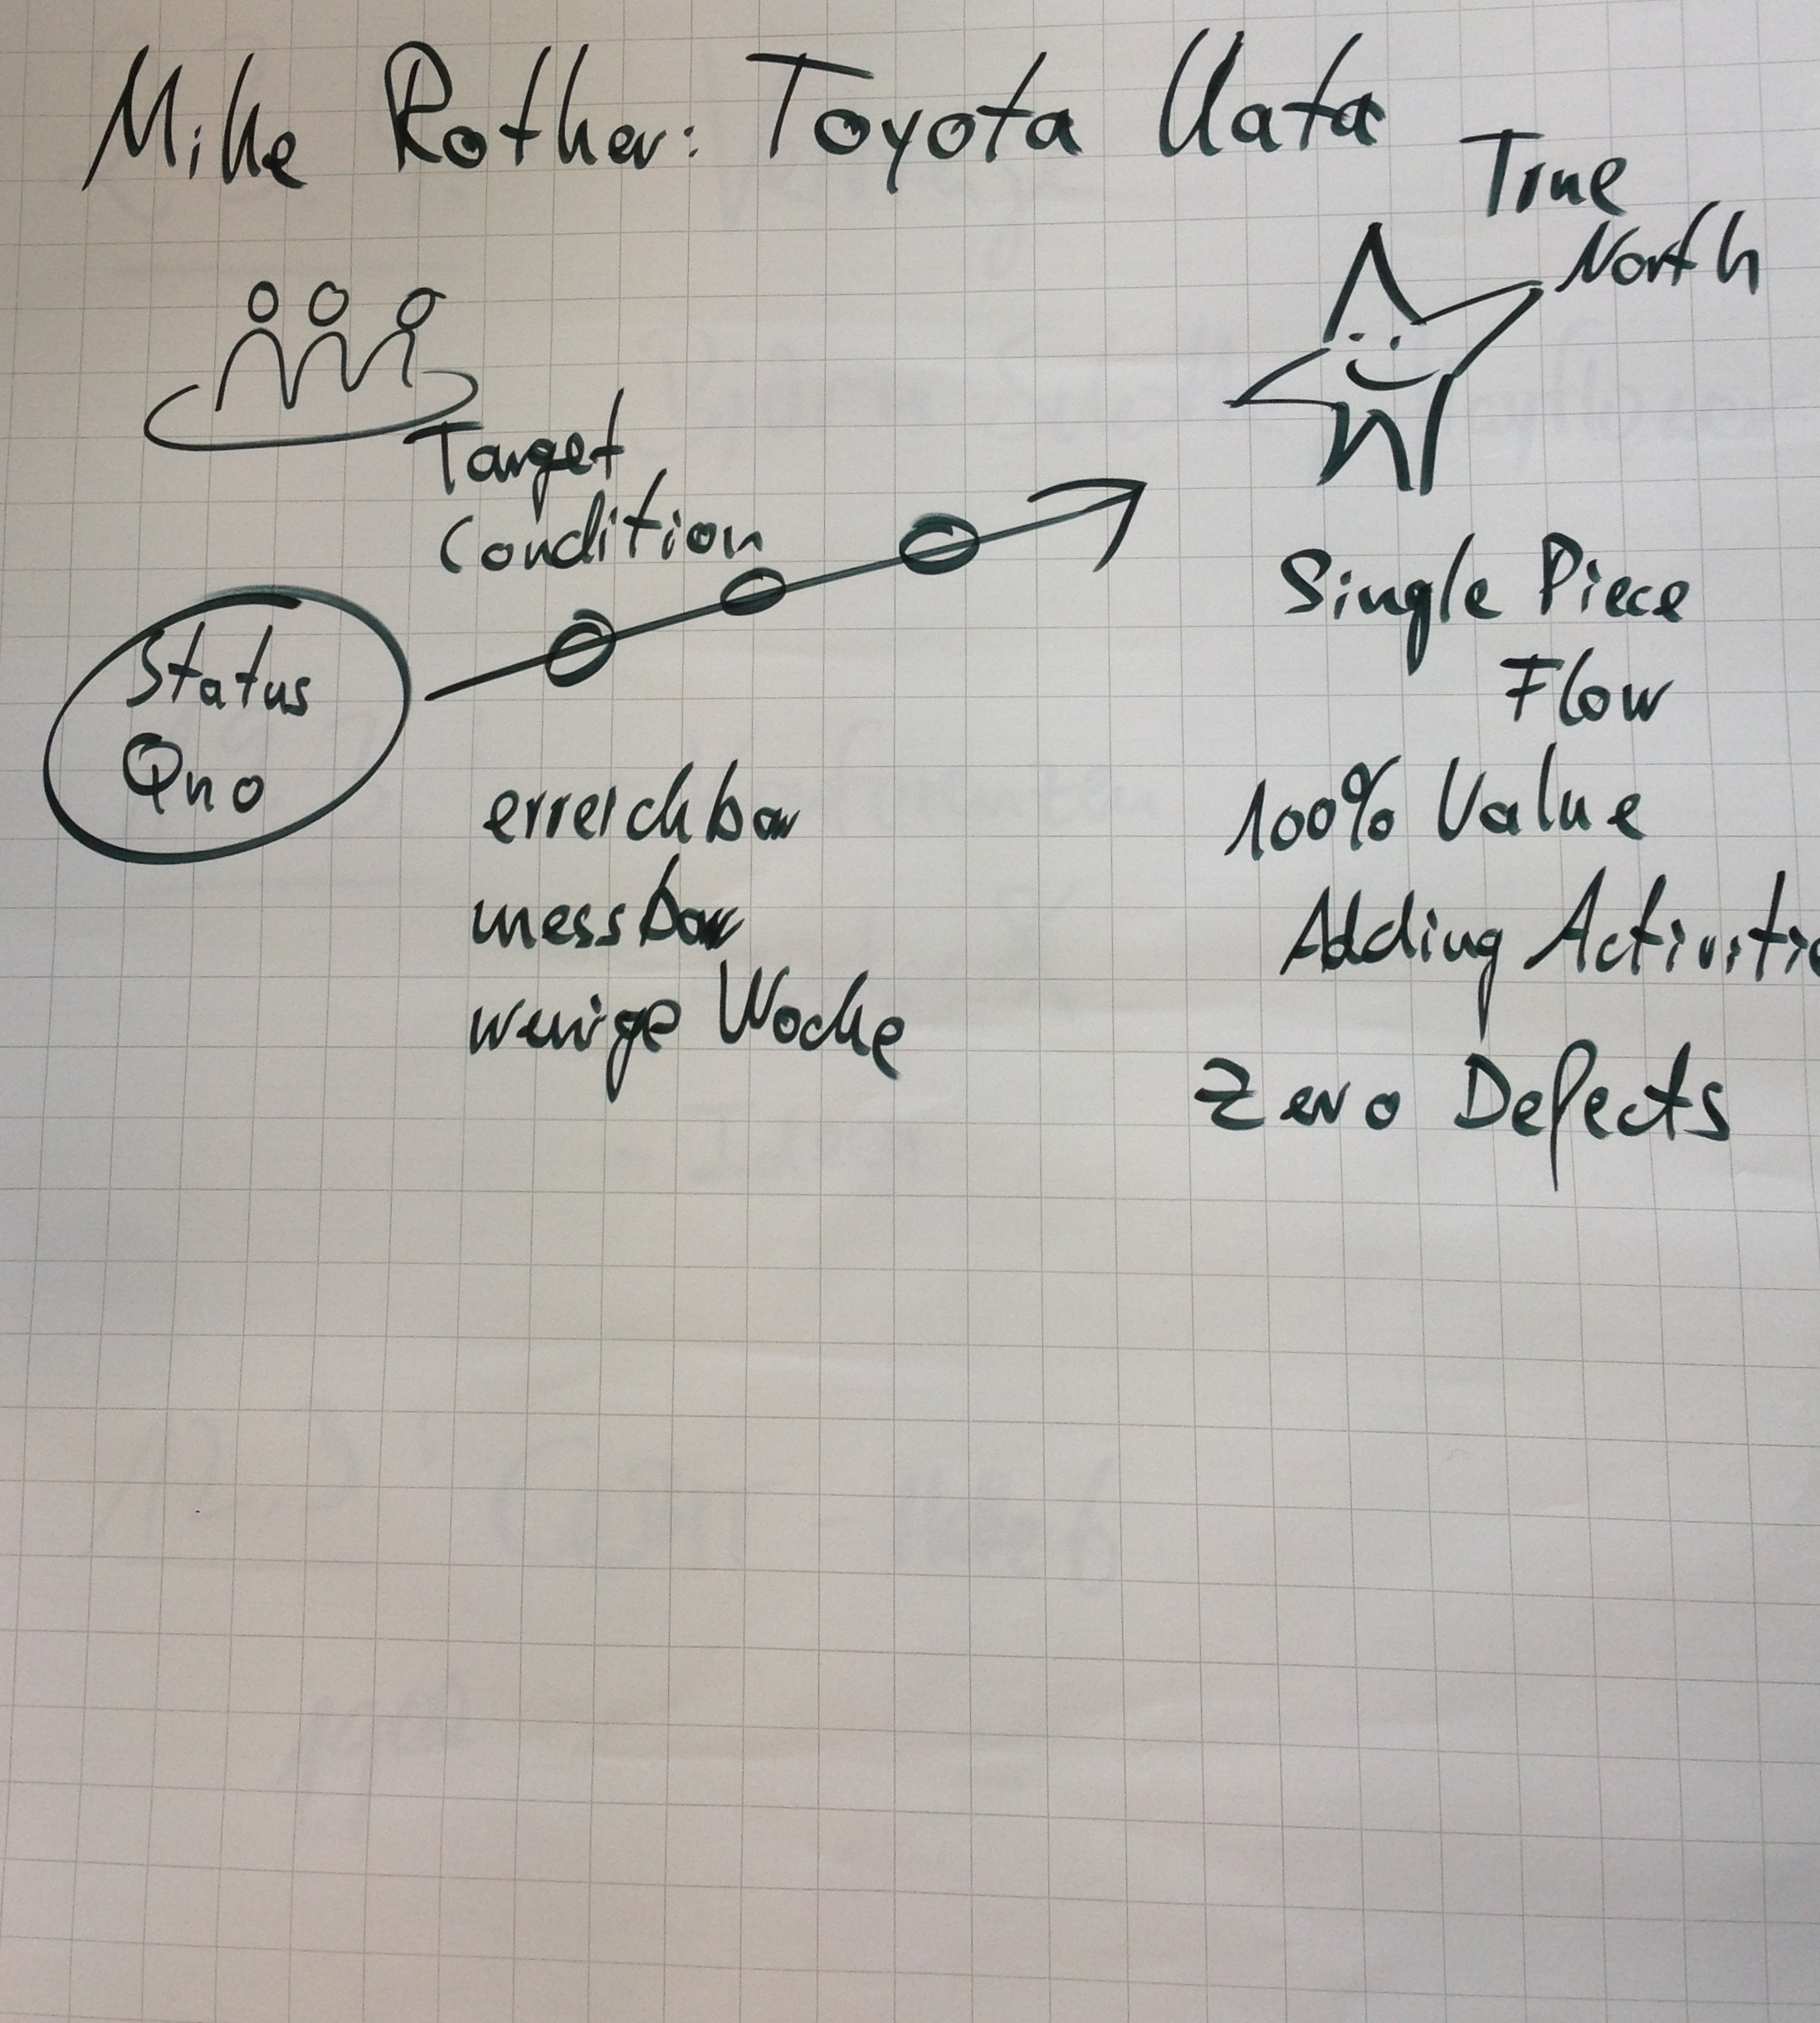 Mike Rother: Toyota Kata
True
North
Target
Condition
Status
Quo
erreichbar
messbar
wenige Woche
Single Piece
Flow
100% Value
Adding Activitie
Zero Defects